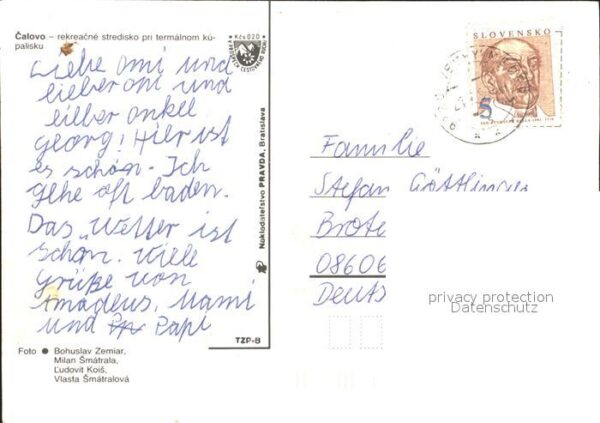 Čalovo – rekreačné stredisko pri termálnom kú-
palisku
Kčs 0,20
Liebe omi und
lieber oni und
lieber onkel
georg! Hier ist
es schön. Ich
gehe oft baden.
Das Wetter ist
schön. Viele
grüße von
Amadeus, Mami
und Papi
Foto ● Bohuslav Zemiar,
Milan Šmátrala,
Ľudovít Koiš,
Vlasta Šmátralová
Nakladateľstvo PRAVDA, Bratislava
TZP-B
SLOVENSKO
5
Familie
Stefan
Brote
08606
Deuts
privacy protection
Datenschutz